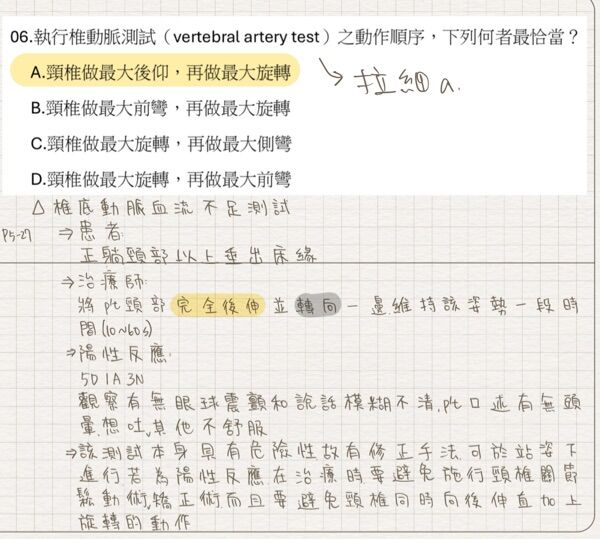 06.執行椎動脈測試（vertebral artery test）之動作順序，下列何者最恰當？
A.頸椎做最大後仰，再做最大旋轉
拉細 a.
B.頸椎做最大前彎，再做最大旋轉
C.頸椎做最大旋轉，再做最大側彎
D.頸椎做最大旋轉，再做最大前彎
△ 椎底動脈血流不足測試
P5-27 ⇒患者:
正躺頸部以上垂出床緣
⇒治療師:
將pt頭部完全後伸並轉向一邊維持該姿勢一段時
間(10~60s)
⇒陽性反應:
5D 1A 3N
觀察有無眼球震顫和說話模糊不清,pt口述有無頭
暈.想吐,其他不舒服
⇒該測試本身具有危險性故有修正手法可於站姿下
進行若為陽性反應在治療時要避免施行頸椎關節
鬆動術,矯正術而且要避免頸椎同時向後伸直加上
旋轉的動作